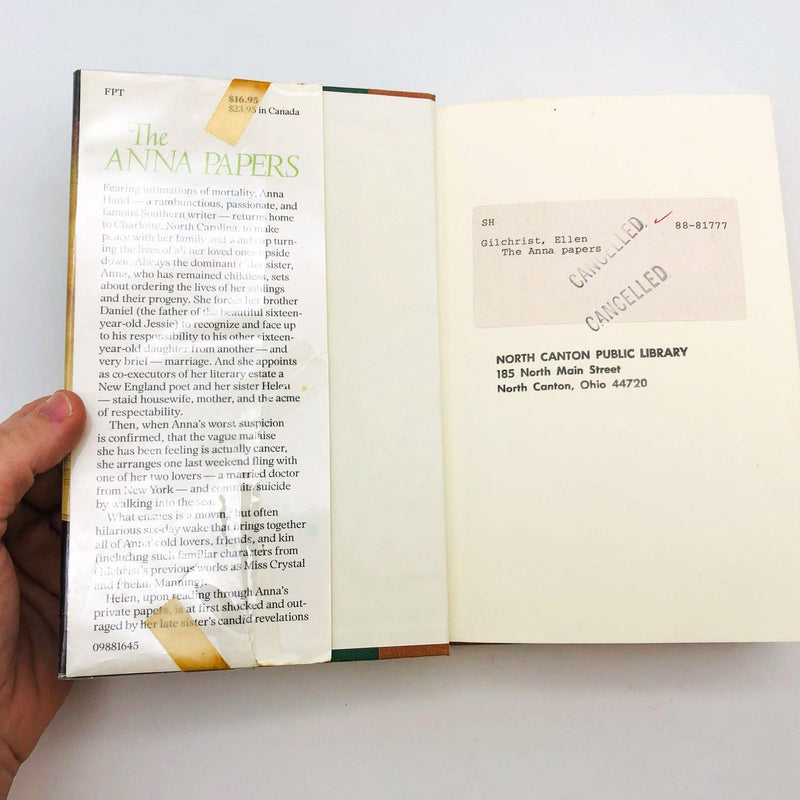 FPT
$16.95
$23.95 in Canada
The
ANNA PAPERS
Fearing intimations of mortality, Anna
Hand — a rambunctious, passionate, and
famous Southern writer — returns home
to Charlotte, North Carolina, to make
peace with her family and winds up turn-
ing the lives of all her loved ones upside
down. Always the dominant older sister,
Anna, who has remained childless, sets
about ordering the lives of her siblings
and their progeny. She forces her brother
Daniel (the father of the beautiful sixteen-
year-old Jessie) to recognize and face up
to his responsibility to his other sixteen-
year-old daughter from another — and
very brief — marriage. And she appoints
as co-executors of her literary estate a
New England poet and her sister Helen
— staid housewife, mother, and the acme
of respectability.
Then, when Anna's worst suspicion
is confirmed, that the vague malaise
she has been feeling is actually cancer,
she arranges one last weekend fling with
one of her two lovers — a married doctor
from New York — and commits suicide
by walking into the sea.
What ensues is a moving but often
hilarious six-day wake that brings together
all of Anna's old lovers, friends, and kin
(including such familiar characters from
Gilchrist's previous works as Miss Crystal
and Phelan Manning).
Helen, upon reading through Anna's
private papers, is at first shocked and out-
raged by her late sister's candid revelations
09881645
SH
88-81777
Gilchrist, Ellen
The Anna papers
CANCELLED
CANCELLED
NORTH CANTON PUBLIC LIBRARY
185 North Main Street
North Canton, Ohio 44720